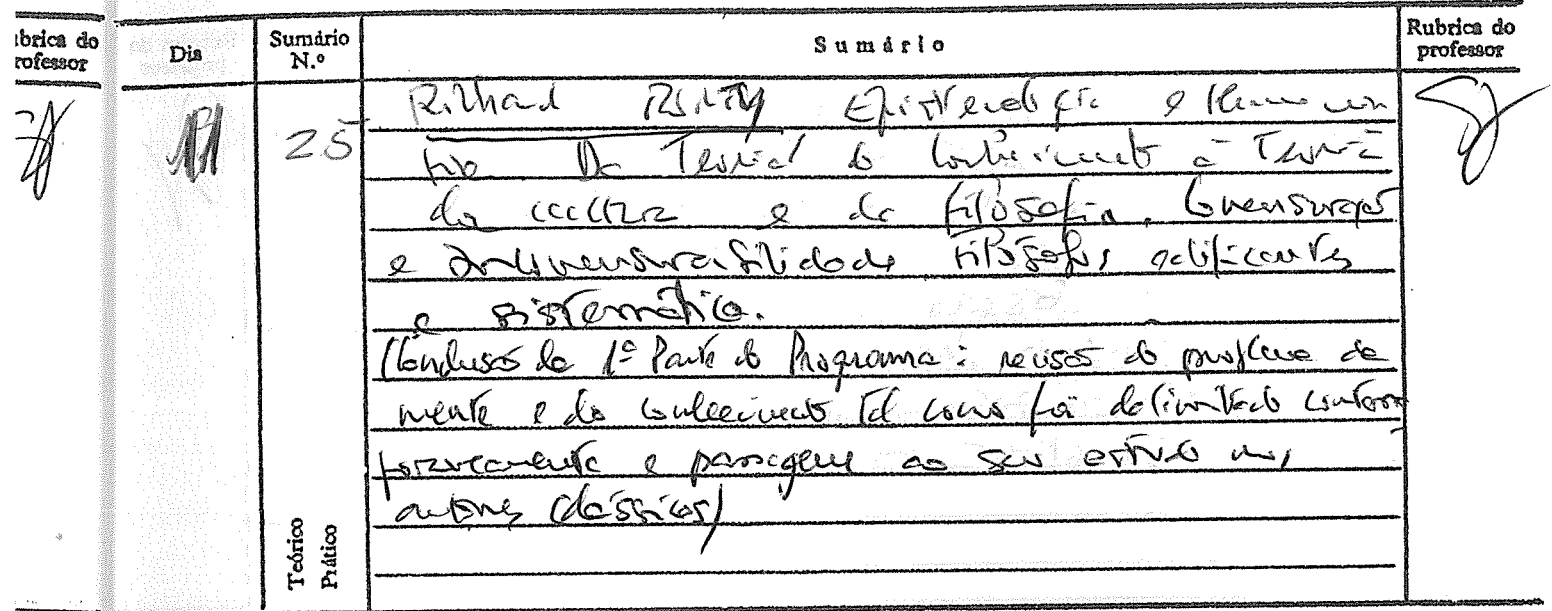 ubrica do
rofessor
Dia
Sumário
N.º
Sumário
Rubrica do
professor
25
Richard Rorty Epistemologia e Hermenêu
tica Da Teoria do Conhecimento à Teoria
da cultura e da filosofia. Comensuração
e Incomensurabilidade Filósofos edificantes
e sistemáticos.
(Conclusão da 1ª Parte do Programa: revisão do problema da
mente e do conhecimento tal como foi delimitado contem
poraneamente e passagem ao seu estudo nos
autores clássicos)
Teórico
Prático